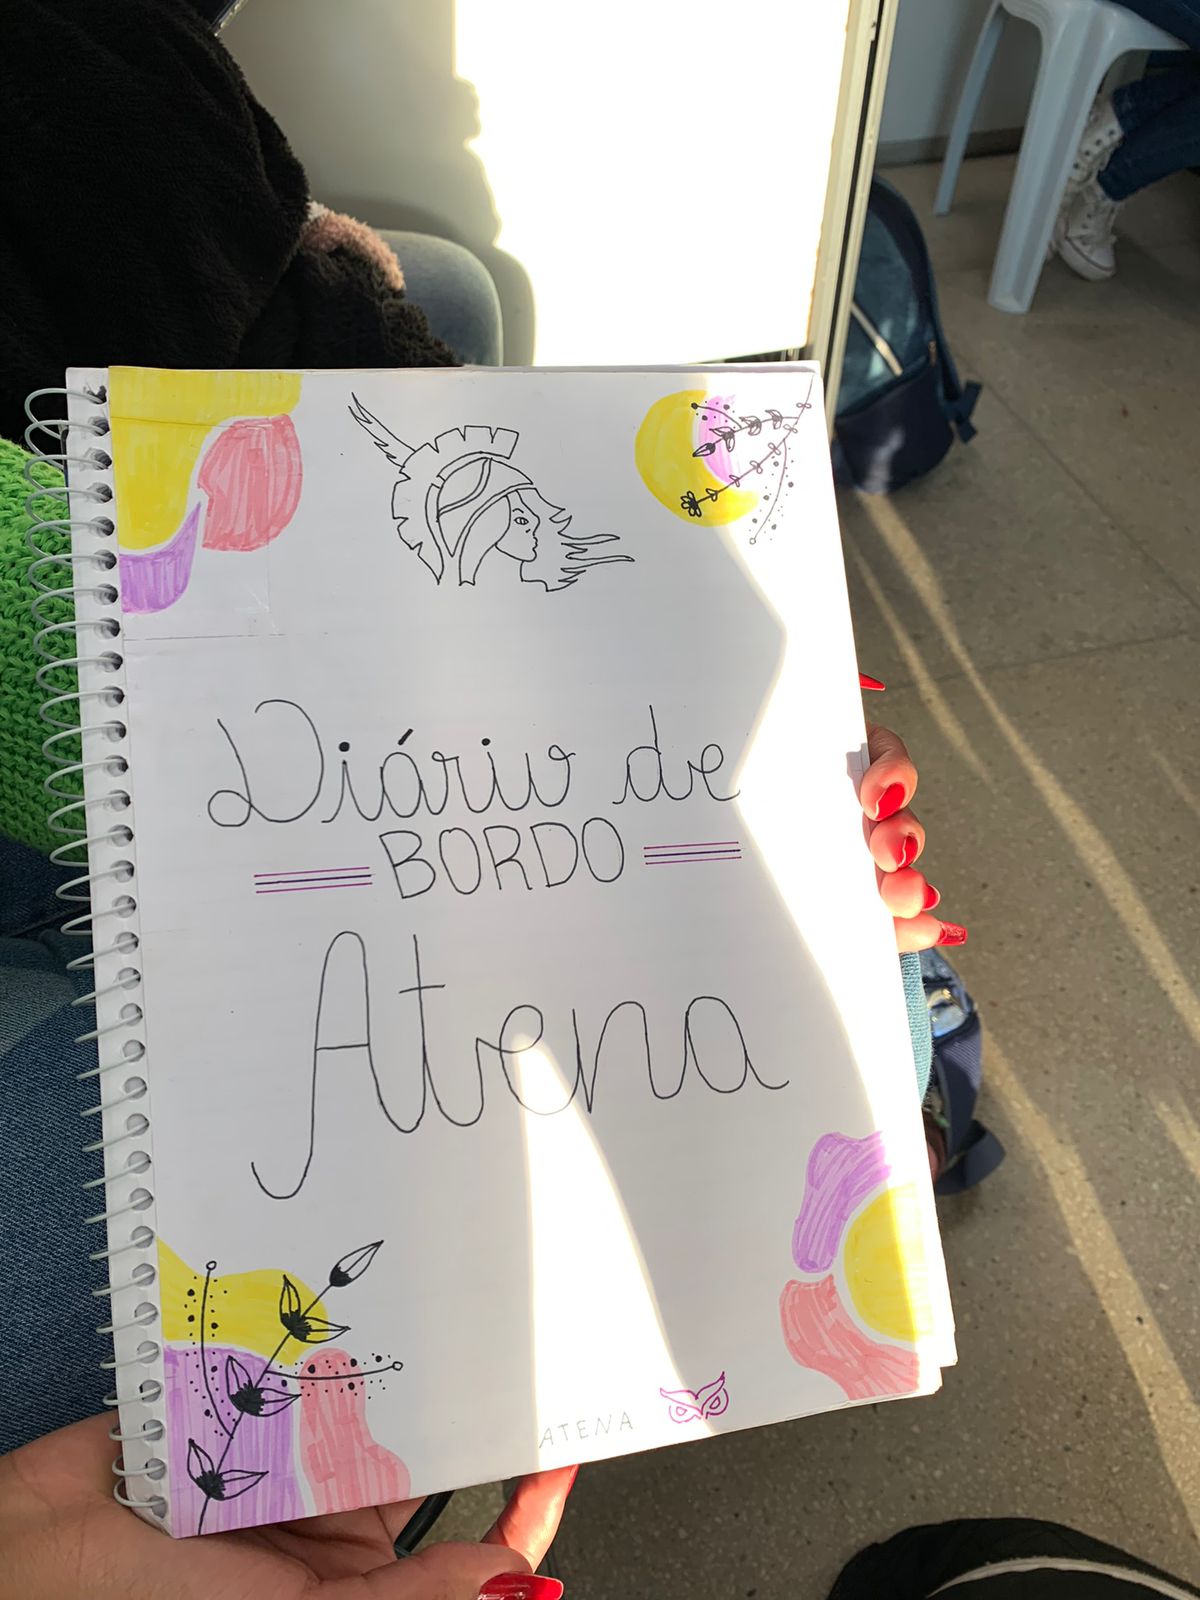 Diário de
BORDO
Atena
ATENA